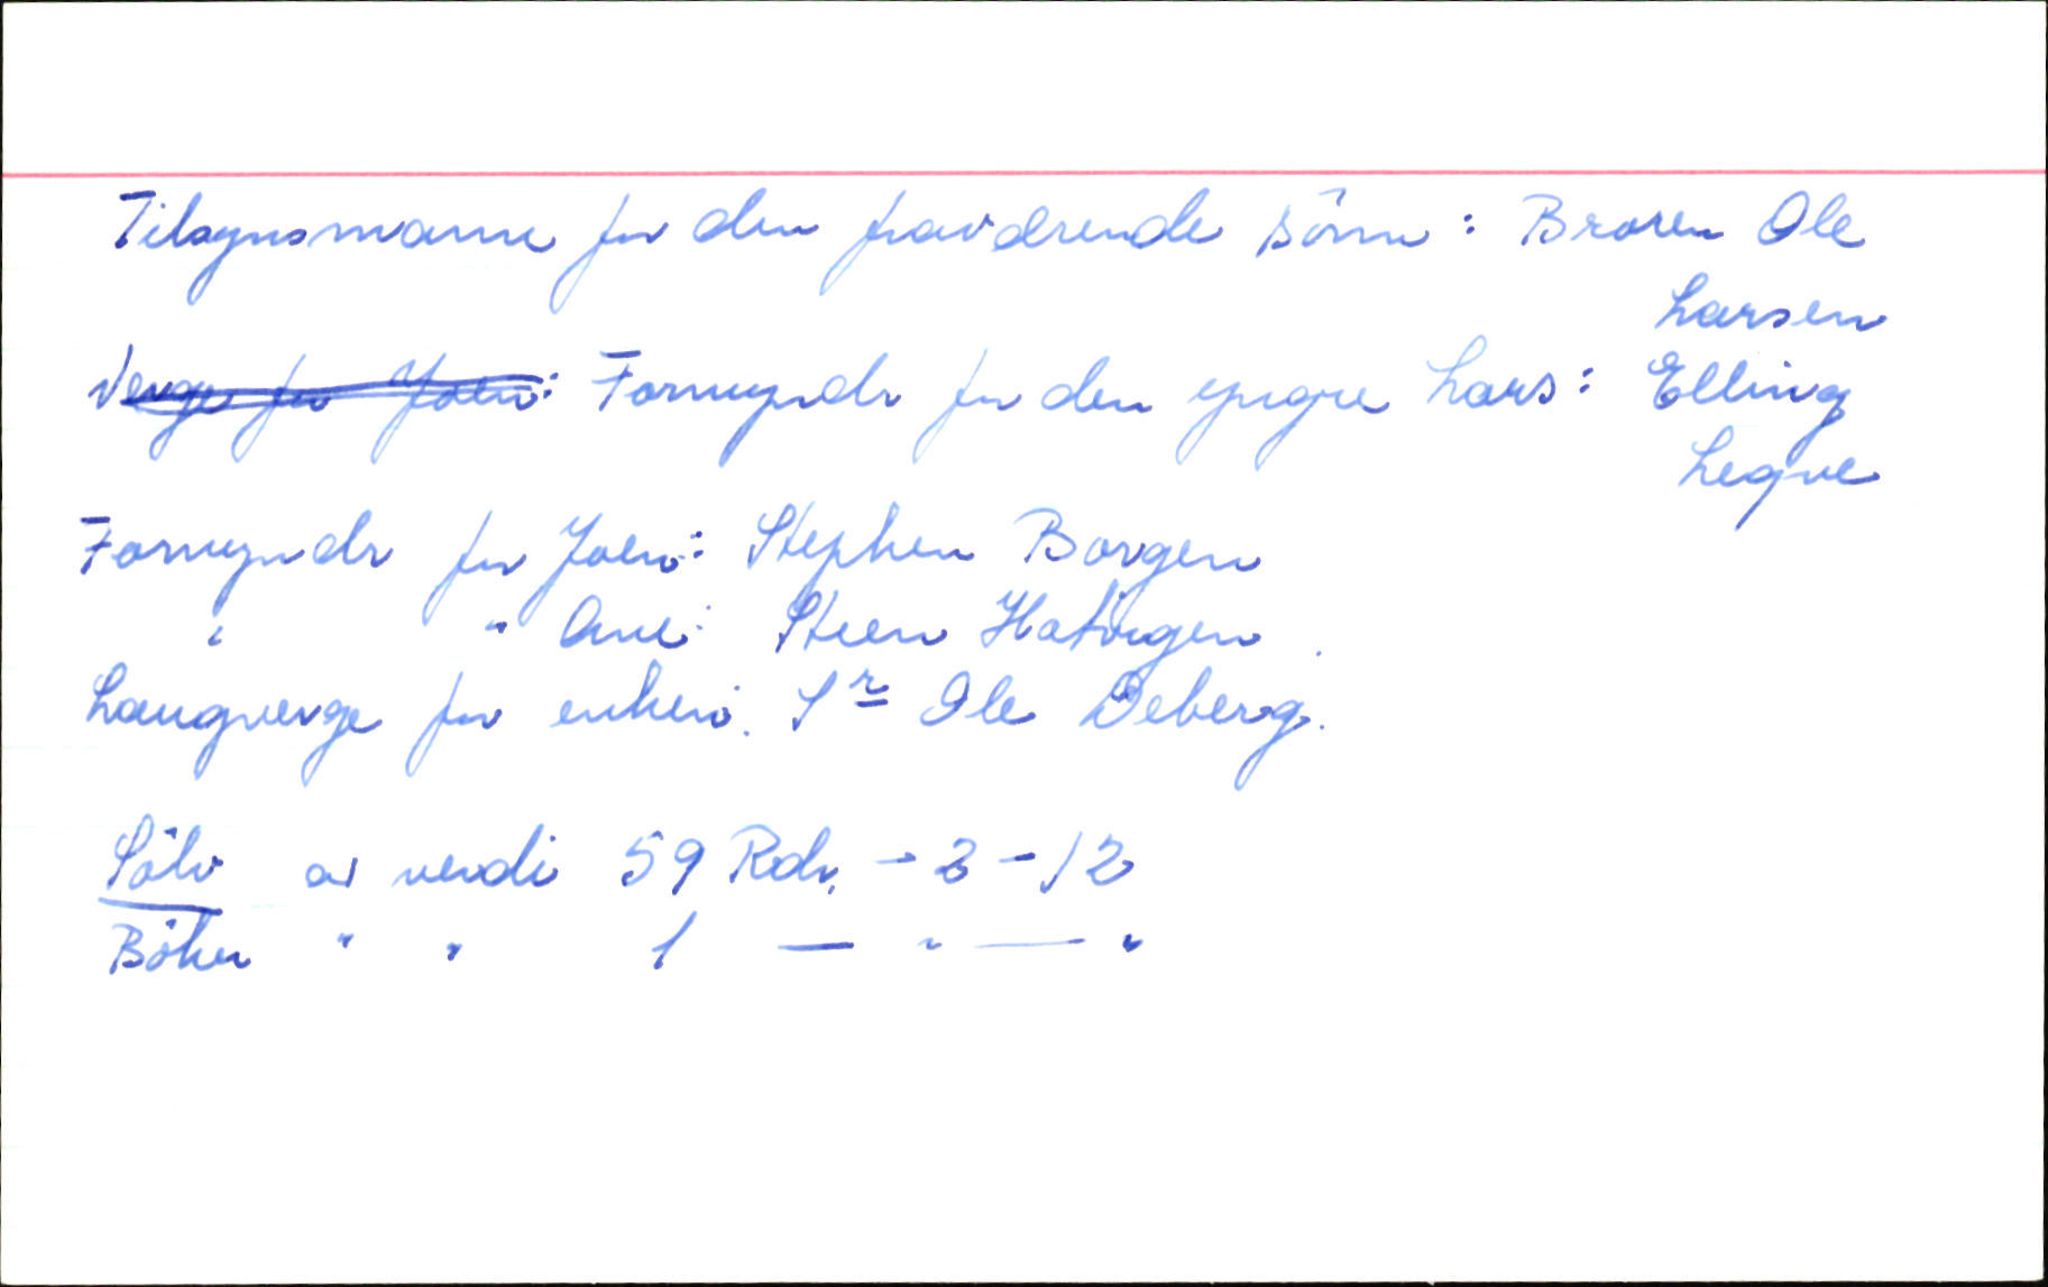 Tilsynsmann for den fraværende sönn: Broren Ole
Larsen
Verge for Joen: Formyndr for den yngre Lars: Elling
Legve
Formyndr for Joen: Stephen Borgen
" " Ane: Steen
Laugverge for enken: Sr Ole Deberg.
Sölv av verdi 59 Rdr. - 2 - 12
Böker " " 1 — " — "